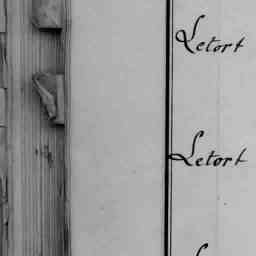 Letort
Letort